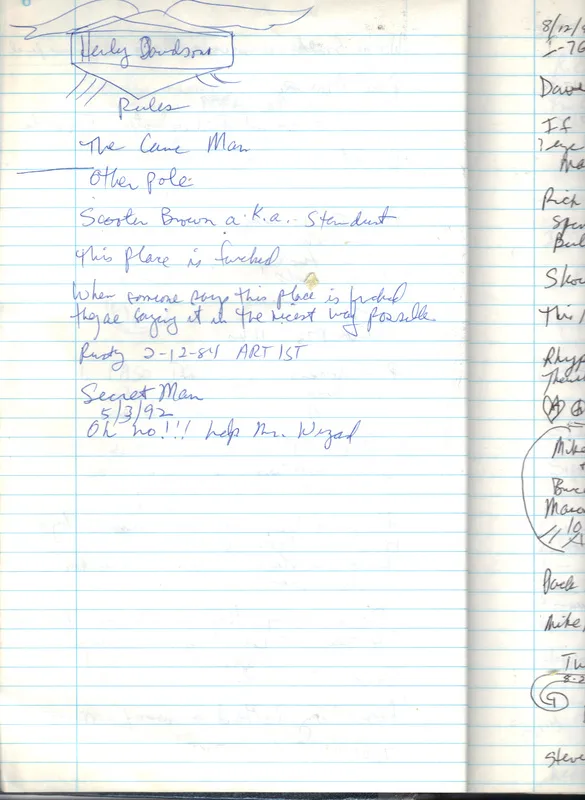 Harley Davidson
Rules
The Cave Man
Other pole
Scooter Brown a.k.a. Stardust
This place is fucked
When someone says this place is fucked
they are saying it in the nicest way possible
Rusty 2-12-84 ARTIST
Secret Man
5/3/92
Oh no!!! help Mr. Wizard
8/12/
Dave
If
Rich
Mike
Mike,
Steve